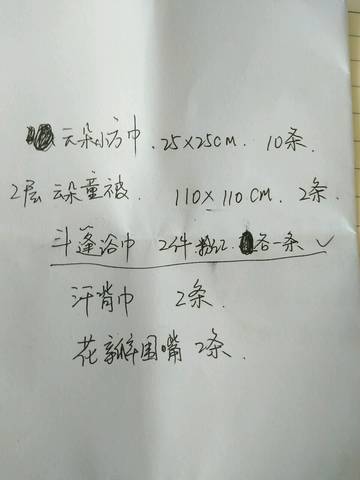 云朵小方巾.25×25cm. 10条.
2层云朵童被. 110×110cm. 2条.
斗蓬浴巾 2件 粉红.各一条 ✓
汗背巾 2条.
花瓣围嘴 2条.